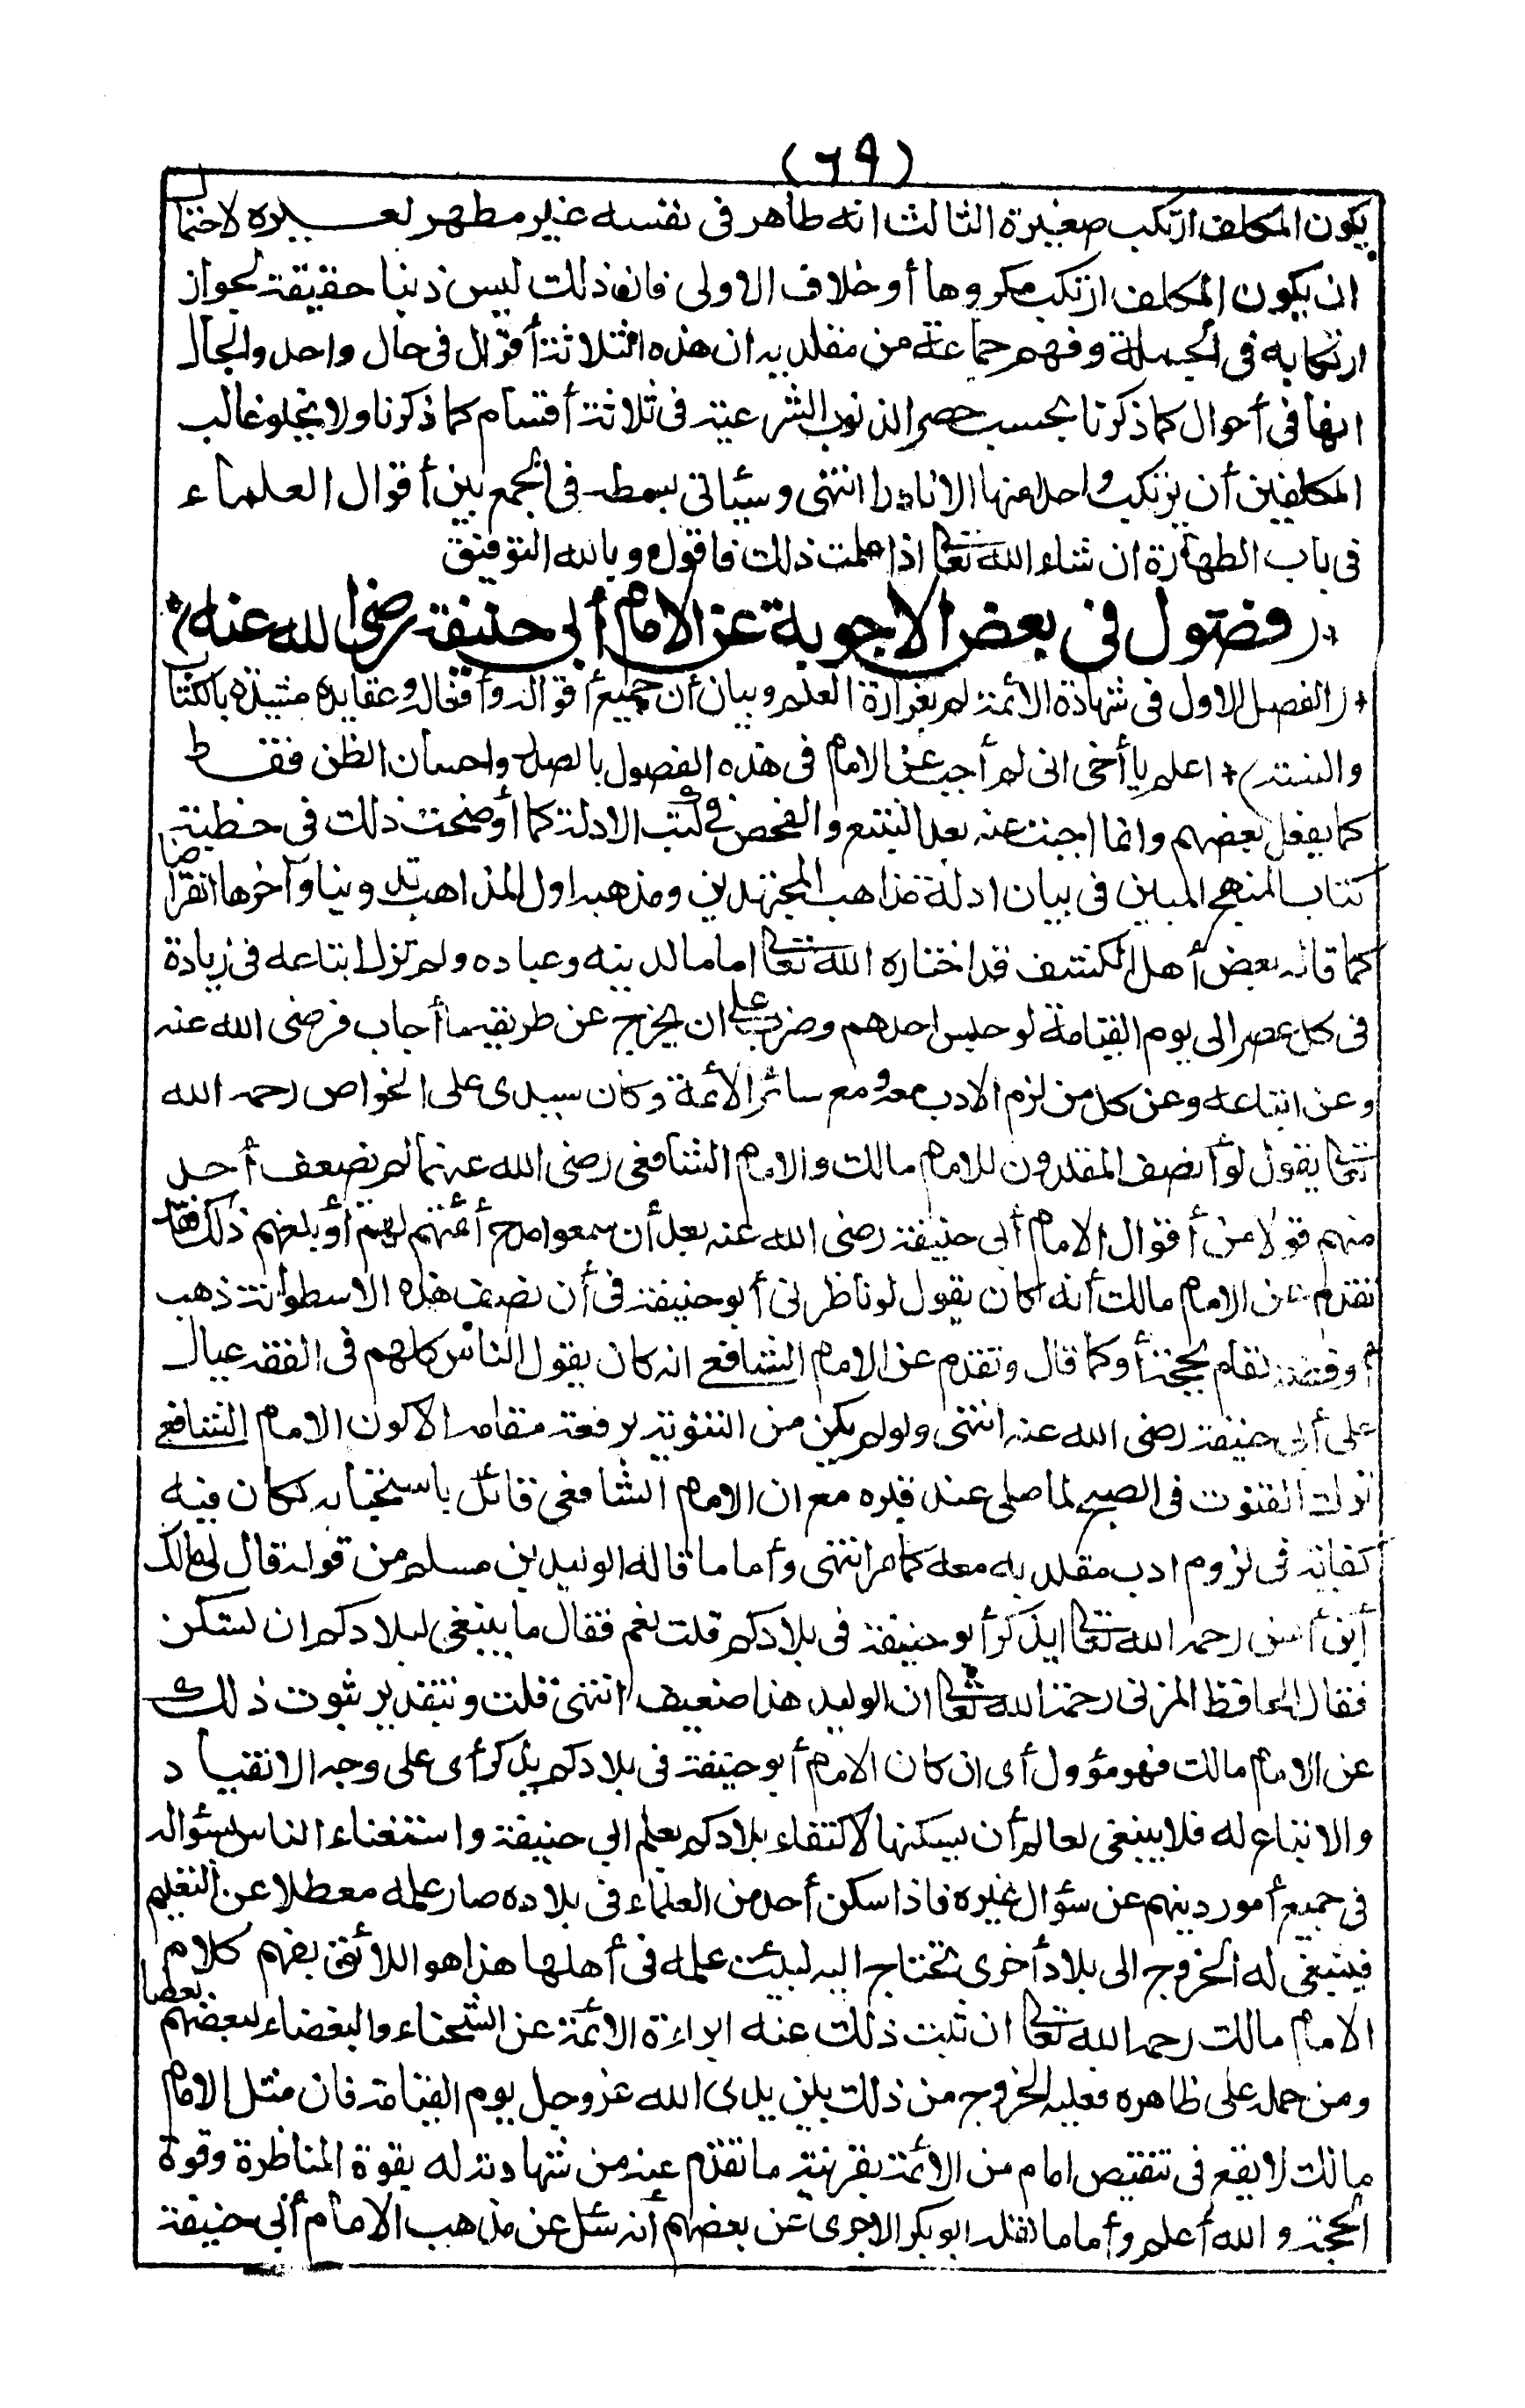 (٦٩)
يكون المكلف ارتكب صغيرة الثالث انه طاهر فى نفسه غير مطهر لغيره لاحتمال
ان يكون المكلف ارتكب مكروها أو خلاف الاولى فان ذلك ليس ذنبا حقيقة لجواز
ارتكابه فى الجملة وفهم جماعة من مقلديه ان هذه الثلاثة أقوال فى حال واحد والحال
انها فى أحوال كما ذكرنا بحسب حصر الذنوب الشرعية فى ثلاثة أقسام كما ذكرنا ولا يخلو غالب
المكلفين أن يرتكب واحدا منها الا نادرا انتهى وسيأتى بسطه فى الجمع بين أقوال العلماء
فى باب الطهارة ان شاء الله تعالى اذا علمت ذلك فاقول وبالله التوفيق
*(فصول فى بعض الاجوبة عن الامام أبى حنيفة رضى الله عنه)*
*(الفصل الاول فى شهادة الائمة له بغزارة العلم وبيان أن جميع أقواله وأفعاله وعقايده مشيدة بالكتاب
والسنة)* اعلم يا أخى انى لم أجب عن الامام فى هذه الفصول بالصدر واحسان الظن فقط
كما يفعل بعضهم وانما اجبت عنه بعد التتبع والفحص فى كتب الادلة كما أوضحت ذلك فى خطبة
كتاب المنهج المبين فى بيان ادلة مذاهب المجتهدين ومذهبه اول المذاهب تدوينا وآخرها انقراضا
كما قاله بعض أهل الكشف قد اختاره الله تعالى اماما لدينه وعباده ولم تزل اتباعه فى زيادة
فى كل عصر الى يوم القيامة لو حبس احدهم وضرب على ان يخرج عن طريقه ما أجاب فرضى الله عنه
وعن اتباعه وعن كل من لزم الادب معه ومع سائر الأئمة وكان سيدى على الخواص رحمه الله
تعالى يقول لو أنصف المقلدون للامام مالك والامام الشافعى رضى الله عنهما لم يضعف أحد
منهم قولا من أقوال الامام أبى حنيفة رضى الله عنه بعد أن سمعوا مدح أئمتهم له أو بلغهم ذلك فقد
تقدم عن الامام مالك أنه كان يقول لو ناظرنى أبو حنيفة فى أن نصف هذه الاسطوانة ذهب
أو فضة لقام بحجته أو كما قال وتقدم عن الامام الشافعى انه كان يقول الناس كلهم فى الفقه عيال
على أبى حنيفة رضى الله عنه انتهى ولو لم يكن من التنويه برفعة مقامه الا كون الامام الشافعى
ترك القنوت فى الصبح لما صلى عند قبره مع ان الامام الشافعى قائل باستحبابه لكان فيه
كفاية فى لزوم ادب مقلديه معه كما مر انتهى وأما ما قاله الوليد بن مسلم من قوله قال لى مالك
ابن أنس رحمه الله تعالى ايذكر أبو حنيفة فى بلادكم قلت نعم فقال ما ينبغى لبلادكم ان تسكن
فقال الحافظ المزنى رحمة الله تعالى ان الوليد هذا ضعيف انتهى قلت وبتقدير ثبوت ذلك
عن الامام مالك فهو مؤول أى ان كان الامام أبو حنيفة فى بلادكم يذكر أى على وجه الانقياد
والاتباع له فلا ينبغى لعالم أن يسكنها لاكتفاء بلادكم بعلم ابى حنيفة واستغناء الناس بسؤاله
فى جميع أمور دينهم عن سؤال غيره فاذا سكن أحد من العلماء فى بلاده صار علمه معطلا عن التعليم
فينبغى له الخروج الى بلاد أخرى تحتاج اليه ليبث علمه فى أهلها هذا هو اللائق بفهم كلام
الامام مالك رحمه الله تعالى ان ثبت ذلك عنه ابراءة الائمة عن الشحناء والبغضاء لبعضهم بعضا
ومن حمله على ظاهره فعليه الخروج من ذلك بين يدى الله عز وجل يوم القيامة فان مثل الامام
مالك لا يقع فى تنقيص امام من الائمة بقرينة ما تقدم عنه من شهادته له بقوة المناظرة وقوة
الحجة والله أعلم وأما ما نقله ابو بكر الاجرى عن بعضهم أنه سئل عن مذهب الامام أبى حنيفة